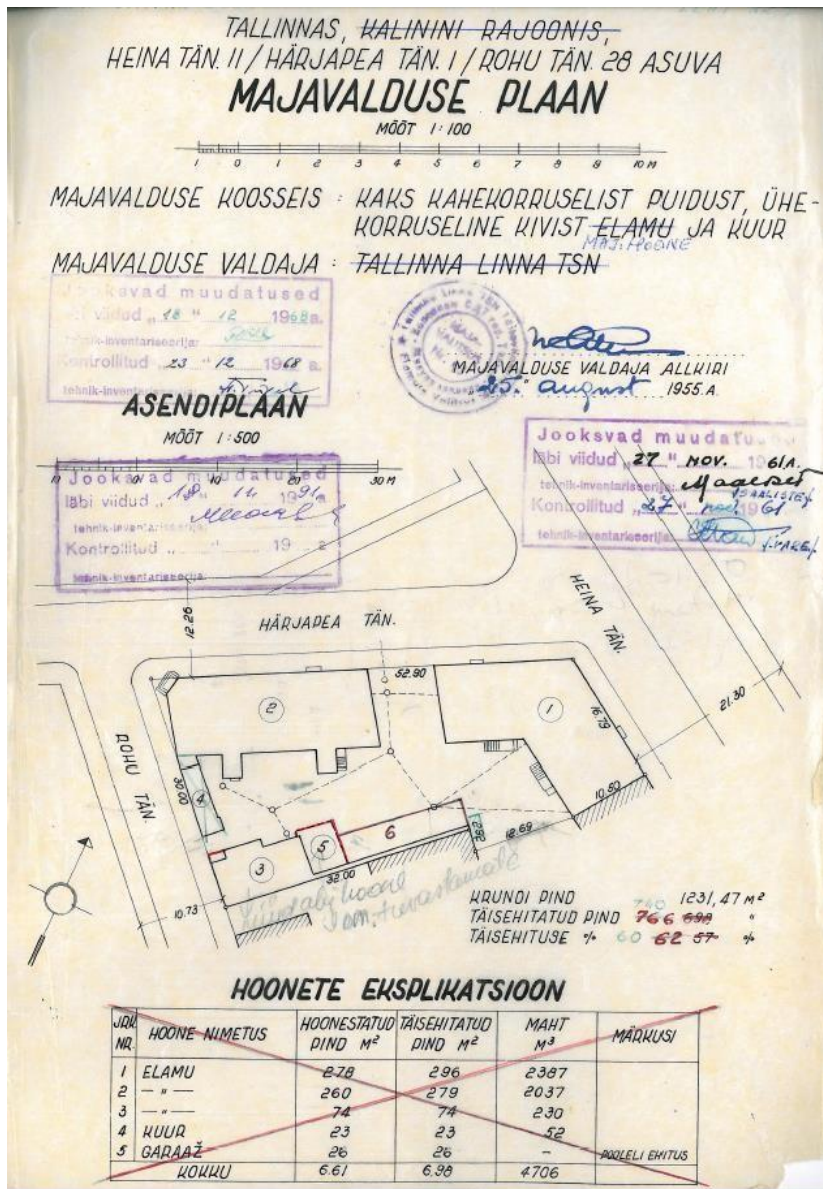 TALLINNAS, KALININI RAJOONIS,
HEINA TÄN. 11 / HÄRJAPEA TÄN. 1 / ROHU TÄN. 28 ASUVA
MAJAVALDUSE PLAAN
MÕÕT 1:100
1 0 1 2 3 4 5 6 7 8 9 10 M
MAJAVALDUSE KOOSSEIS : KAKS KAHEKORRUSELIST PUIDUST, ÜHE-
KORRUSELINE KIVIST ELAMU JA KUUR
MAJ. HOONE
MAJAVALDUSE VALDAJA : TALLINNA LINNA TSN
Jooksvad muudatused
viidud „ 18 " 12 1968 a.
tehnik-inventariseerija:
Kontrollitud „ 23 " 12 1968 a.
tehnik-inventariseerija:
MAJAVALDUSE VALDAJA ALLKIRI
„25." august 1955 A.
ASENDIPLAAN
MÕÕT 1:500
10 0 10 20 30 M
Jooksvad muudatused
läbi viidud „ 18 11 1991 a
tehnik-inventariseerija:
Kontrollitud „ " 19 a
tehnik-inventariseerija:
Jooksvad muudatused
läbi viidud „ 27 " NOV. 1961 A.
tehnik-inventariseerija:
Kontrollitud „ 27 " nov. 1961
tehnik-inventariseerija:
12.26
HÄRJAPEA TÄN.
HEINA TÄN.
52.90
2
1
16.79
21.30
ROHU TÄN.
30.00
4
10.50
6
2.62
12.69
5
3
32.00
10.73
KRUNDI PIND 1231,47 M²
TÄISEHITATUD PIND 740 766 698 "
TÄISEHITUSE % 60 62 57 %
HOONETE EKSPLIKATSIOON
JRK. NR. HOONE NIMETUS HOONESTATUD PIND M² TÄISEHITATUD PIND M² MAHT M³ MÄRKUSI
1 ELAMU 278 296 2387
2 — " — 260 279 2037
3 — " — 74 74 230
4 KUUR 23 23 52
5 GARAAŽ 26 26 – POOLELI EHITUS
KOKKU 6.61 6.98 4706